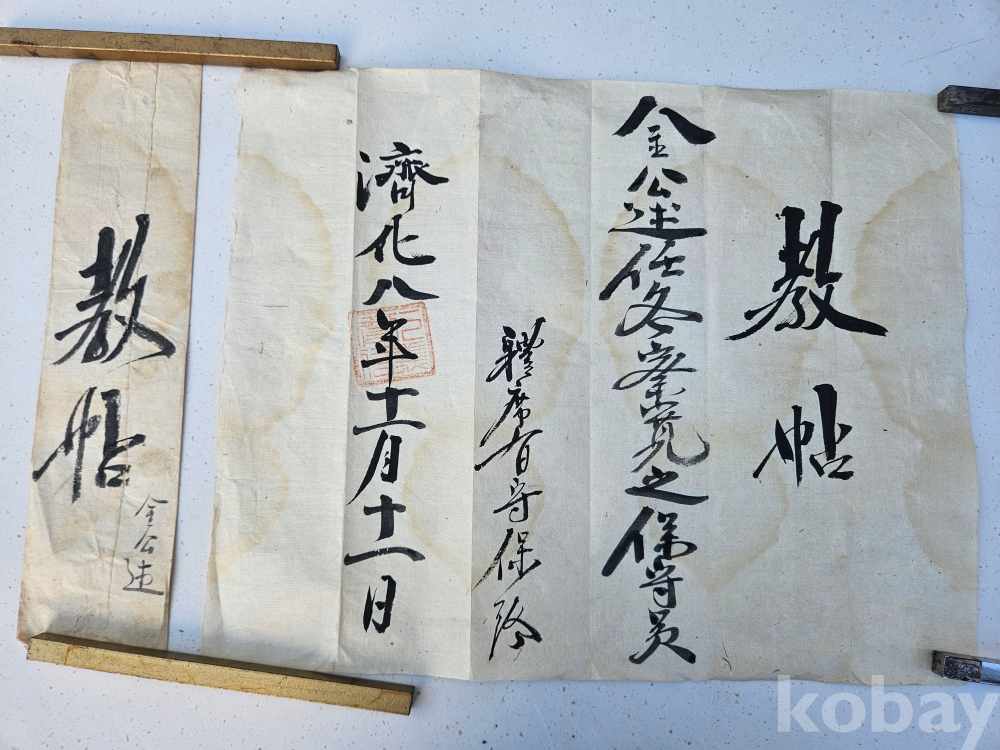 敎帖
金公述任冬察究之保守員
禮席有守保
濟化八年十一月十一日
敎帖
金公述
kobay